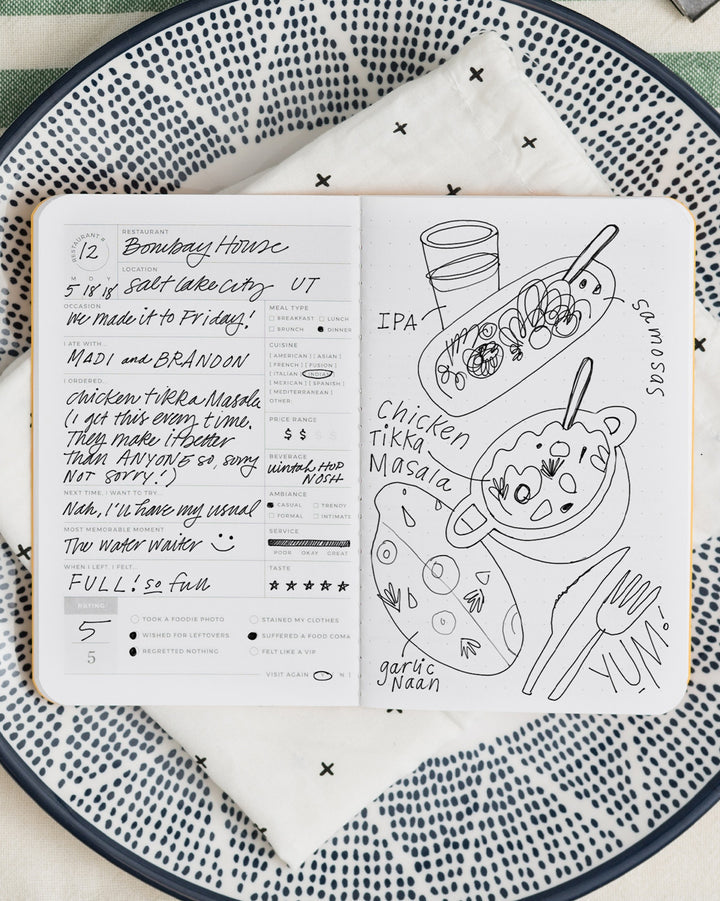 RESTAURANT #
12
RESTAURANT
Bombay House
LOCATION
M D Y
5 18 18
Salt Lake City UT
OCCASION
We made it to Friday!
I ATE WITH...
MADI and BRANDON
I ORDERED...
chicken tikka Masala
(I get this every time.
They make it better
than ANYONE so, sorry
NOT sorry!)
NEXT TIME, I WANT TO TRY...
Nah, I'll have my usual
MOST MEMORABLE MOMENT
The water waiter
WHEN I LEFT, I FELT...
FULL! so full
MEAL TYPE
BREAKFAST LUNCH
BRUNCH DINNER
CUISINE
[ AMERICAN ] [ ASIAN ]
[ FRENCH ] [ FUSION ]
[ ITALIAN ] [ INDIAN ]
[ MEXICAN ] [ SPANISH ]
[ MEDITERRANEAN ]
OTHER:
PRICE RANGE
$ $ $ $
BEVERAGE
uintah HOP
NOSH
AMBIANCE
CASUAL TRENDY
FORMAL INTIMATE
SERVICE
POOR OKAY GREAT
TASTE
RATING:
5
5
TOOK A FOODIE PHOTO
WISHED FOR LEFTOVERS
REGRETTED NOTHING
STAINED MY CLOTHES
SUFFERED A FOOD COMA
FELT LIKE A VIP
VISIT AGAIN Y N
IPA
samosas
Chicken
Tikka
Masala
garlic
Naan
YUM!